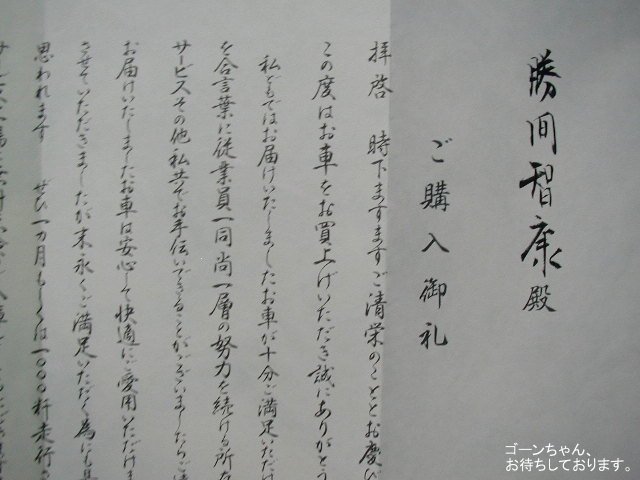 勝間智康殿
ご購入御礼
拝啓 時下ますますご清栄のこととお慶び
この度はお車をお買上げいただき誠にありがとう
私どもではお届けいたしましたお車が十分ご満足いただけ
を合言葉に従業員一同尚一層の努力を続ける所
サービスその他私共でお手伝いできることがございましたらご
お届けいたしましたお車は安心して快適にご愛用いただけま
させていただきましたが末永くご満足いただく為にも
思われます ぜひ一カ月もしくは一〇〇〇粁走行
ゴーンちゃん、
お待ちしております。